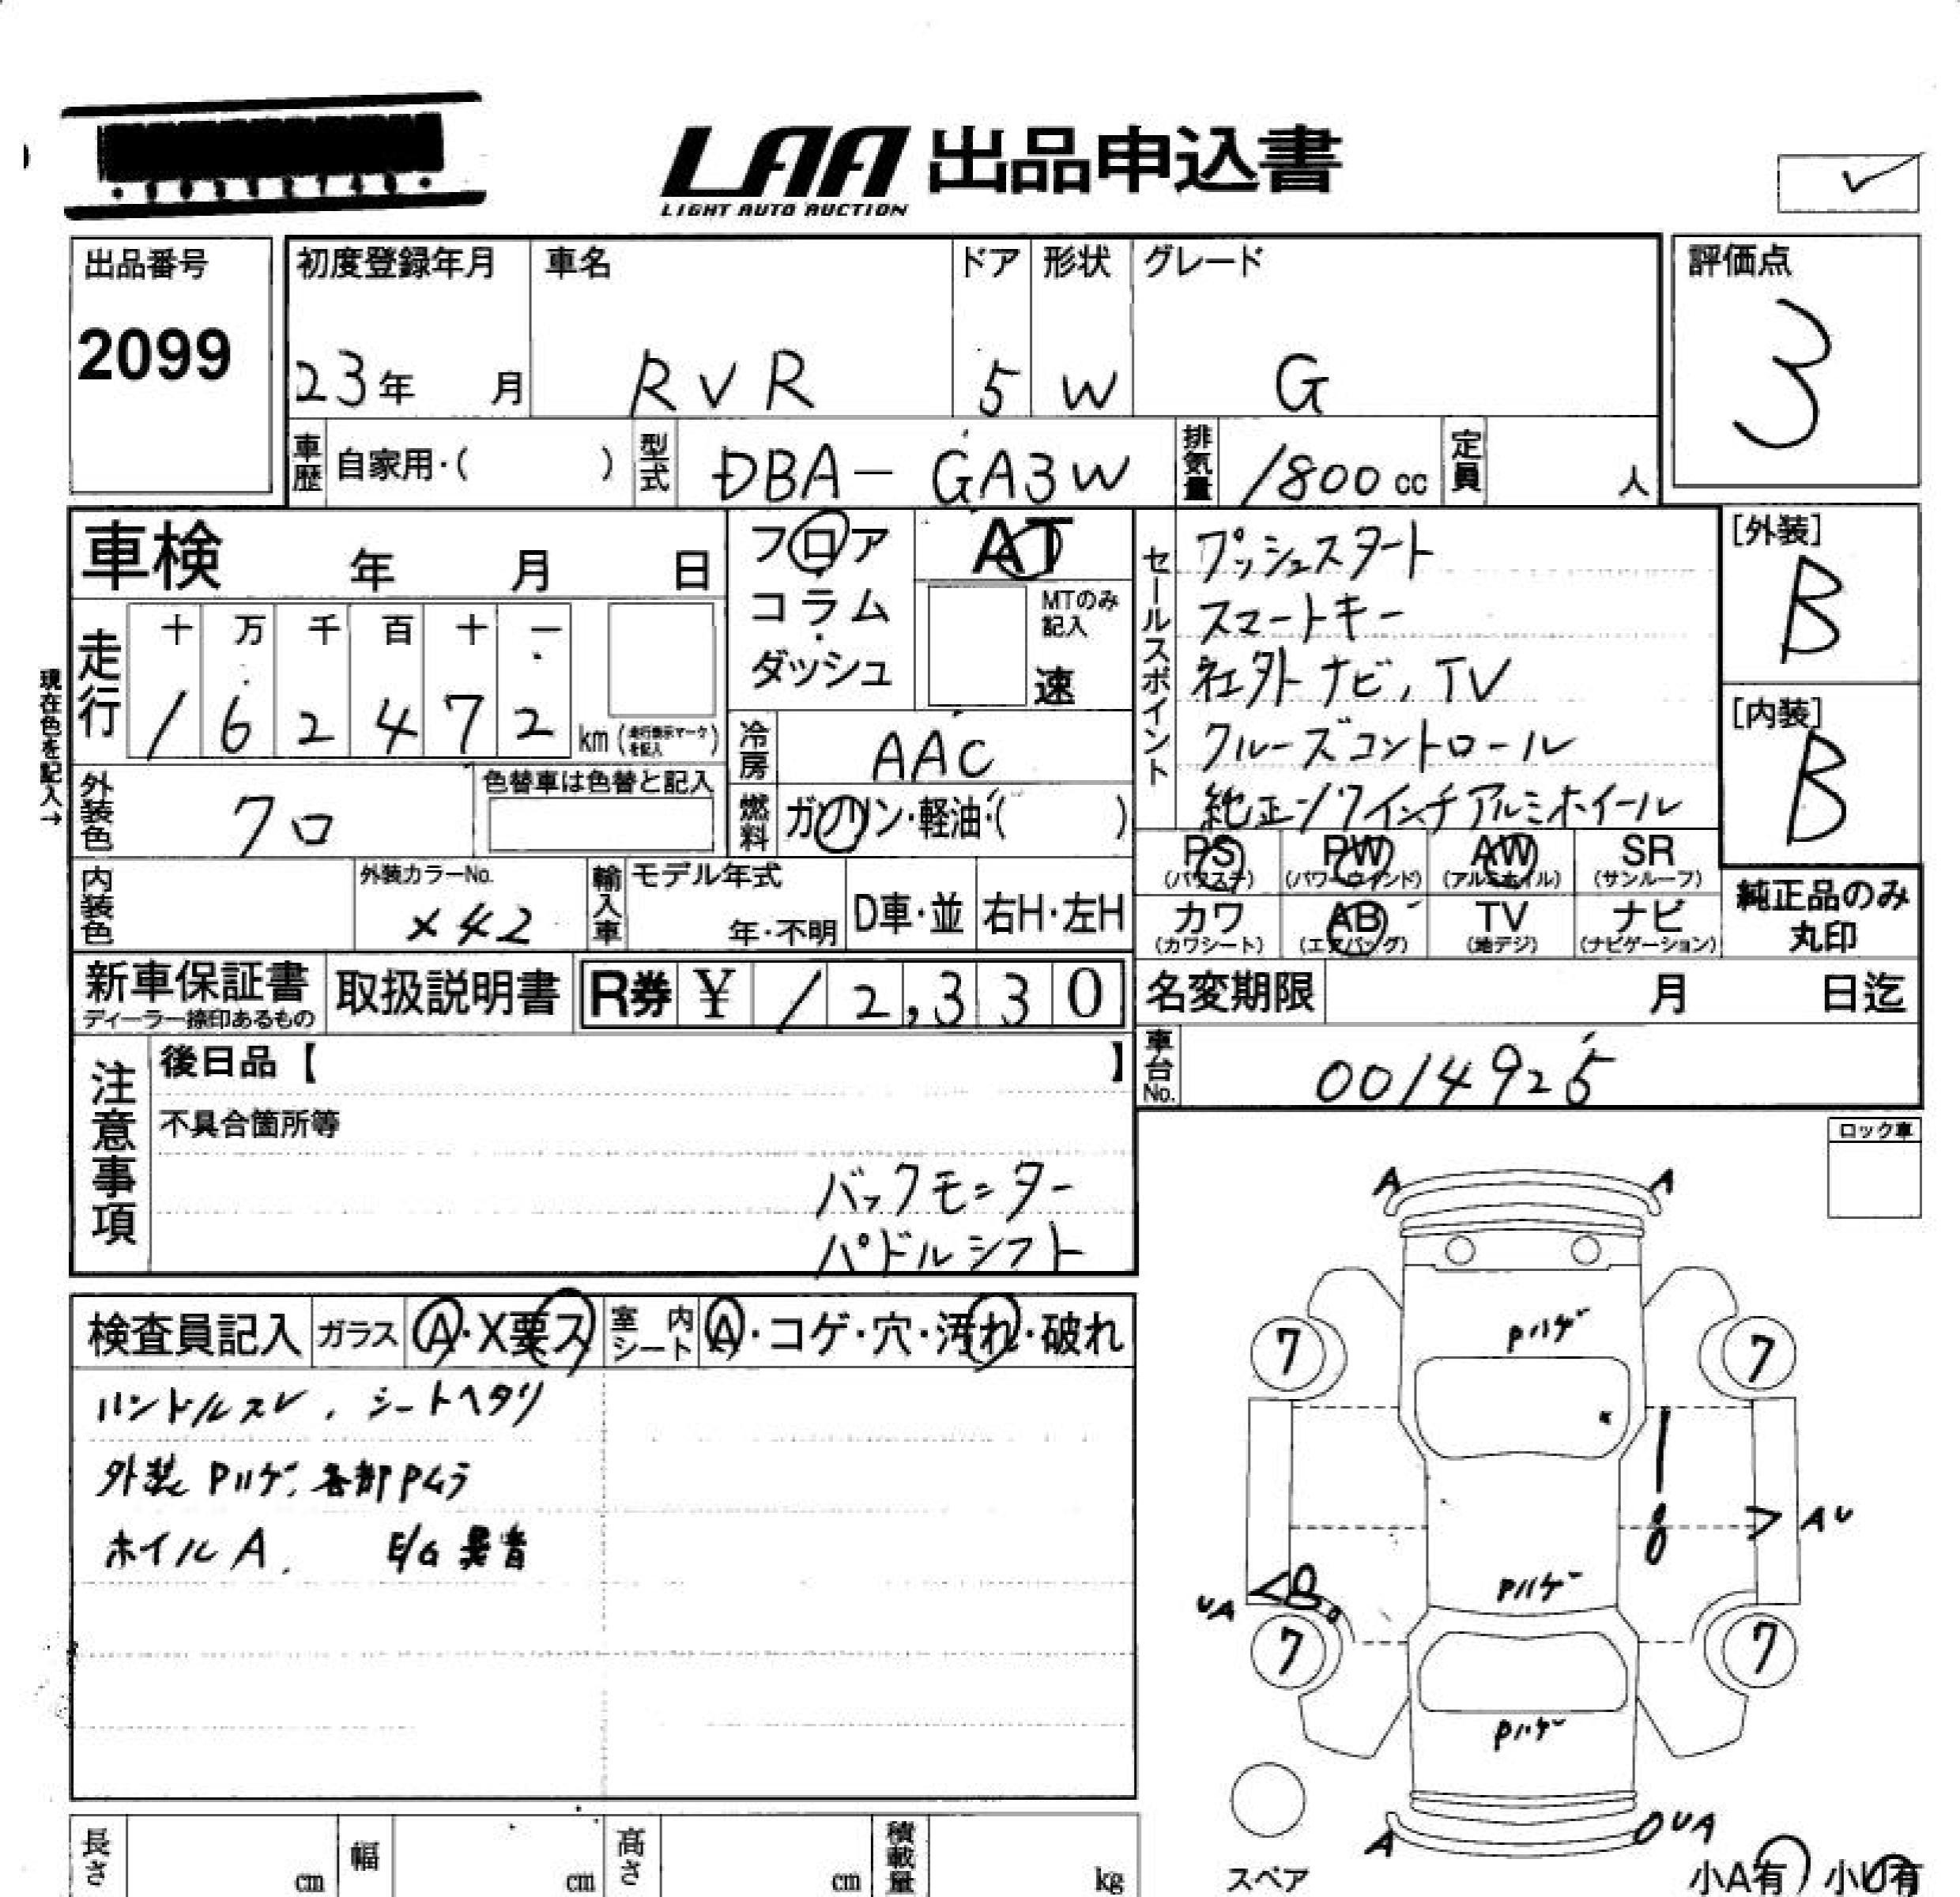 LAA 出品申込書
LIGHT AUTO AUCTION
出品番号
2099
初度登録年月
23年 月
車名
RVR
ドア
5
形状
W
グレード
G
評価点
3
車歴 自家用・( )
型式 DBA-GA3W
排気量 1800 cc
定員 人
車検 年 月 日
フロア
コラム
ダッシュ
AT
MTのみ記入
速
セールスポイント
プッシュスタート
スマートキー
社外ナビ、TV
クルーズコントロール
純正17インチアルミホイール
[外装]
B
[内装]
B
現在色を記入→
走行
十 万 千 百 十 一
1 6 2 4 7 2 km (走行表示マークを記入)
冷房 AAC
外装色 クロ
色替車は色替と記入
燃料 ガソリン・軽油・( )
PS (パワステ)
PW (パワーウィンド)
AW (アルミホイル)
SR (サンルーフ)
内装色
外装カラーNo.
X42
輸入車
モデル年式
年・不明
D車・並
右H・左H
カワ (カワシート)
AB (エアバッグ)
TV (地デジ)
ナビ (ナビゲーション)
純正品のみ丸印
新車保証書
ディーラー捺印あるもの
取扱説明書
R券 ¥ 12,330
名変期限 月 日迄
車台No. 0014925
注意事項
後日品【 】
不具合箇所等
バックモニター
パドルシフト
ロック車
検査員記入
ガラス A・X要ス
室内シート A・コゲ・穴・汚れ・破れ
ハンドルスレ、シートヘタリ
外装Pハゲ、各部Pムラ
ホイルA、 E/G異音
A A
Pハゲ
7 7
AU
Pハゲ
UA B
7 7
Pハゲ
A OUA
スペア
小A有 小U有
長さ cm
幅 cm
高さ cm
積載量 kg